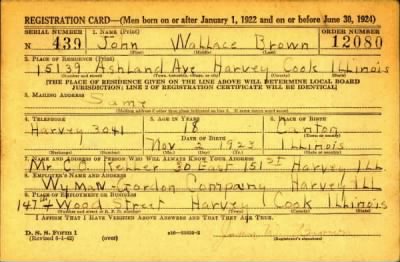 REGISTRATION CARD—(Men born on or after January 1, 1922 and on or before June 30, 1924)
SERIAL NUMBER 1. NAME (Print) ORDER NUMBER
N 439 John Wallace Brown 12080
(First) (Middle) (Last)
2. PLACE OF RESIDENCE (Print)
15139 Ashland Ave Harvey Cook Illinois
(Number and street) (Town, township, village, or city) (County) (State)
[THE PLACE OF RESIDENCE GIVEN ON THE LINE ABOVE WILL DETERMINE LOCAL BOARD
JURISDICTION; LINE 2 OF REGISTRATION CERTIFICATE WILL BE IDENTICAL]
3. MAILING ADDRESS
Same
[Mailing address if other than place indicated on line 2. If same insert word same]
4. TELEPHONE 5. AGE IN YEARS 6. PLACE OF BIRTH
Harvey 3041 18 Canton
DATE OF BIRTH (Town or county)
Nov 2 1923 Illinois
(Exchange) (Number) (Mo.) (Day) (Yr.) (State or country)
7. NAME AND ADDRESS OF PERSON WHO WILL ALWAYS KNOW YOUR ADDRESS
Mr. Keller 30 East 151st Harvey Ill
8. EMPLOYER'S NAME AND ADDRESS
Wyman-Gordon Company Harvey Ill
9. PLACE OF EMPLOYMENT OR BUSINESS
147th Wood Street Harvey Cook Illinois
(Number and street or R. F. D. number) (Town) (County) (State)
I AFFIRM THAT I HAVE VERIFIED ABOVE ANSWERS AND THAT THEY ARE TRUE.
D. S. S. Form 1
(Revised 6-1-42) (over) (Registrant's signature)